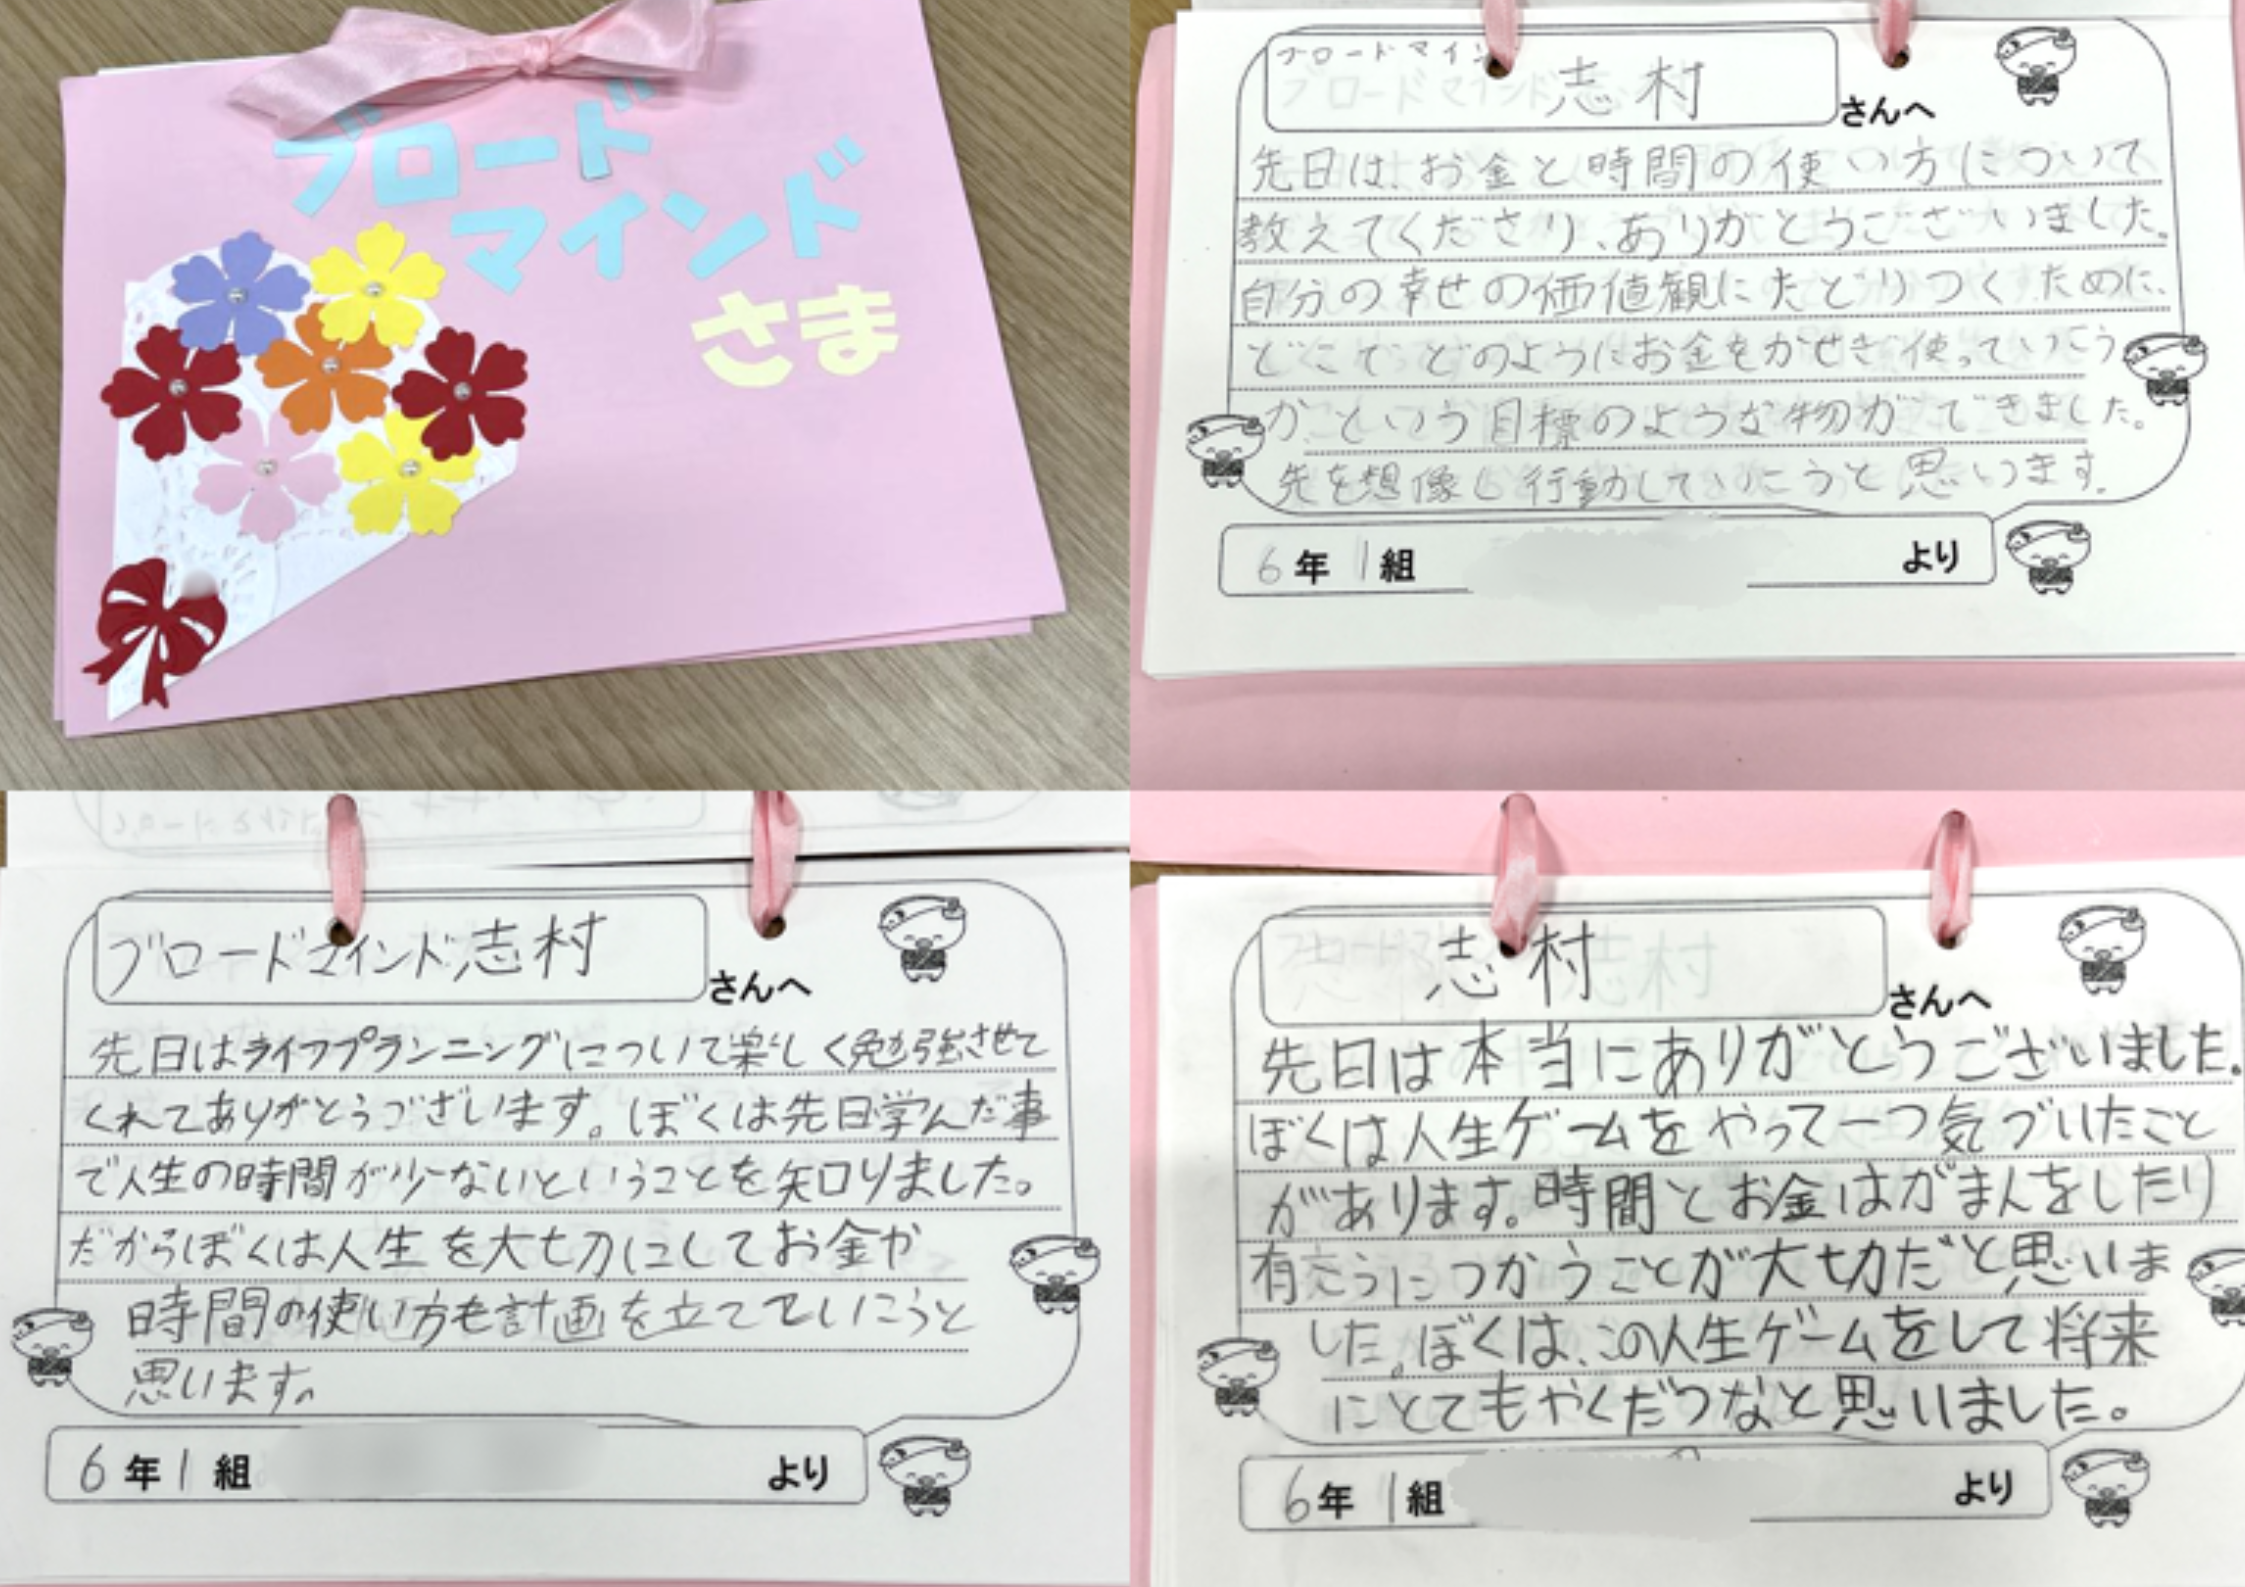 ブロード
マインド
さま
ブロードマイン
志村
さんへ
先日は、お金と時間の使い方について
教えてくださり、ありがとうございました。
自分の幸せの価値観にたどりつくために、
どこでどのようにお金をかせぎ使っていこう
か、という目標のような物ができました。
先を想像し行動していこうと思います。
6年1組
より
ブロードマインド志村
さんへ
先日はライフプランニングについて楽しく勉強させて
くれてありがとうございます。ぼくは先日学んだ事
で人生の時間が少ないということを知りました。
だからぼくは人生を大切にしてお金や
時間の使い方も計画を立てていこうと
思います。
6年1組
より
志村
さんへ
先日は本当にありがとうございました。
ぼくは人生ゲームをやって一つ気づいたこと
があります。時間とお金はがまんをしたり
有こうにつかうことが大切だと思いま
した。ぼくは、この人生ゲームをして将来
にとてもやくだつなと思いました。
6年1組
より